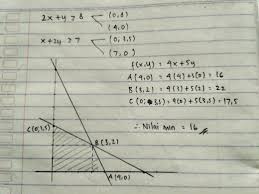 2x+y ≥ 8 (0,8)
(4,0)
x+2y ≥ 7 (0,3,5)
(7,0)
f(x,y) = 4x + 5y
A (4,0) = 4(4)+5(0) = 16
B (3,2) = 4(3)+5(2) = 22
C (0,3,5) = 4(0)+5(3,5) = 17,5
∴ Nilai min = 16
C (0,3,5)
B (3,2)
A (4,0)